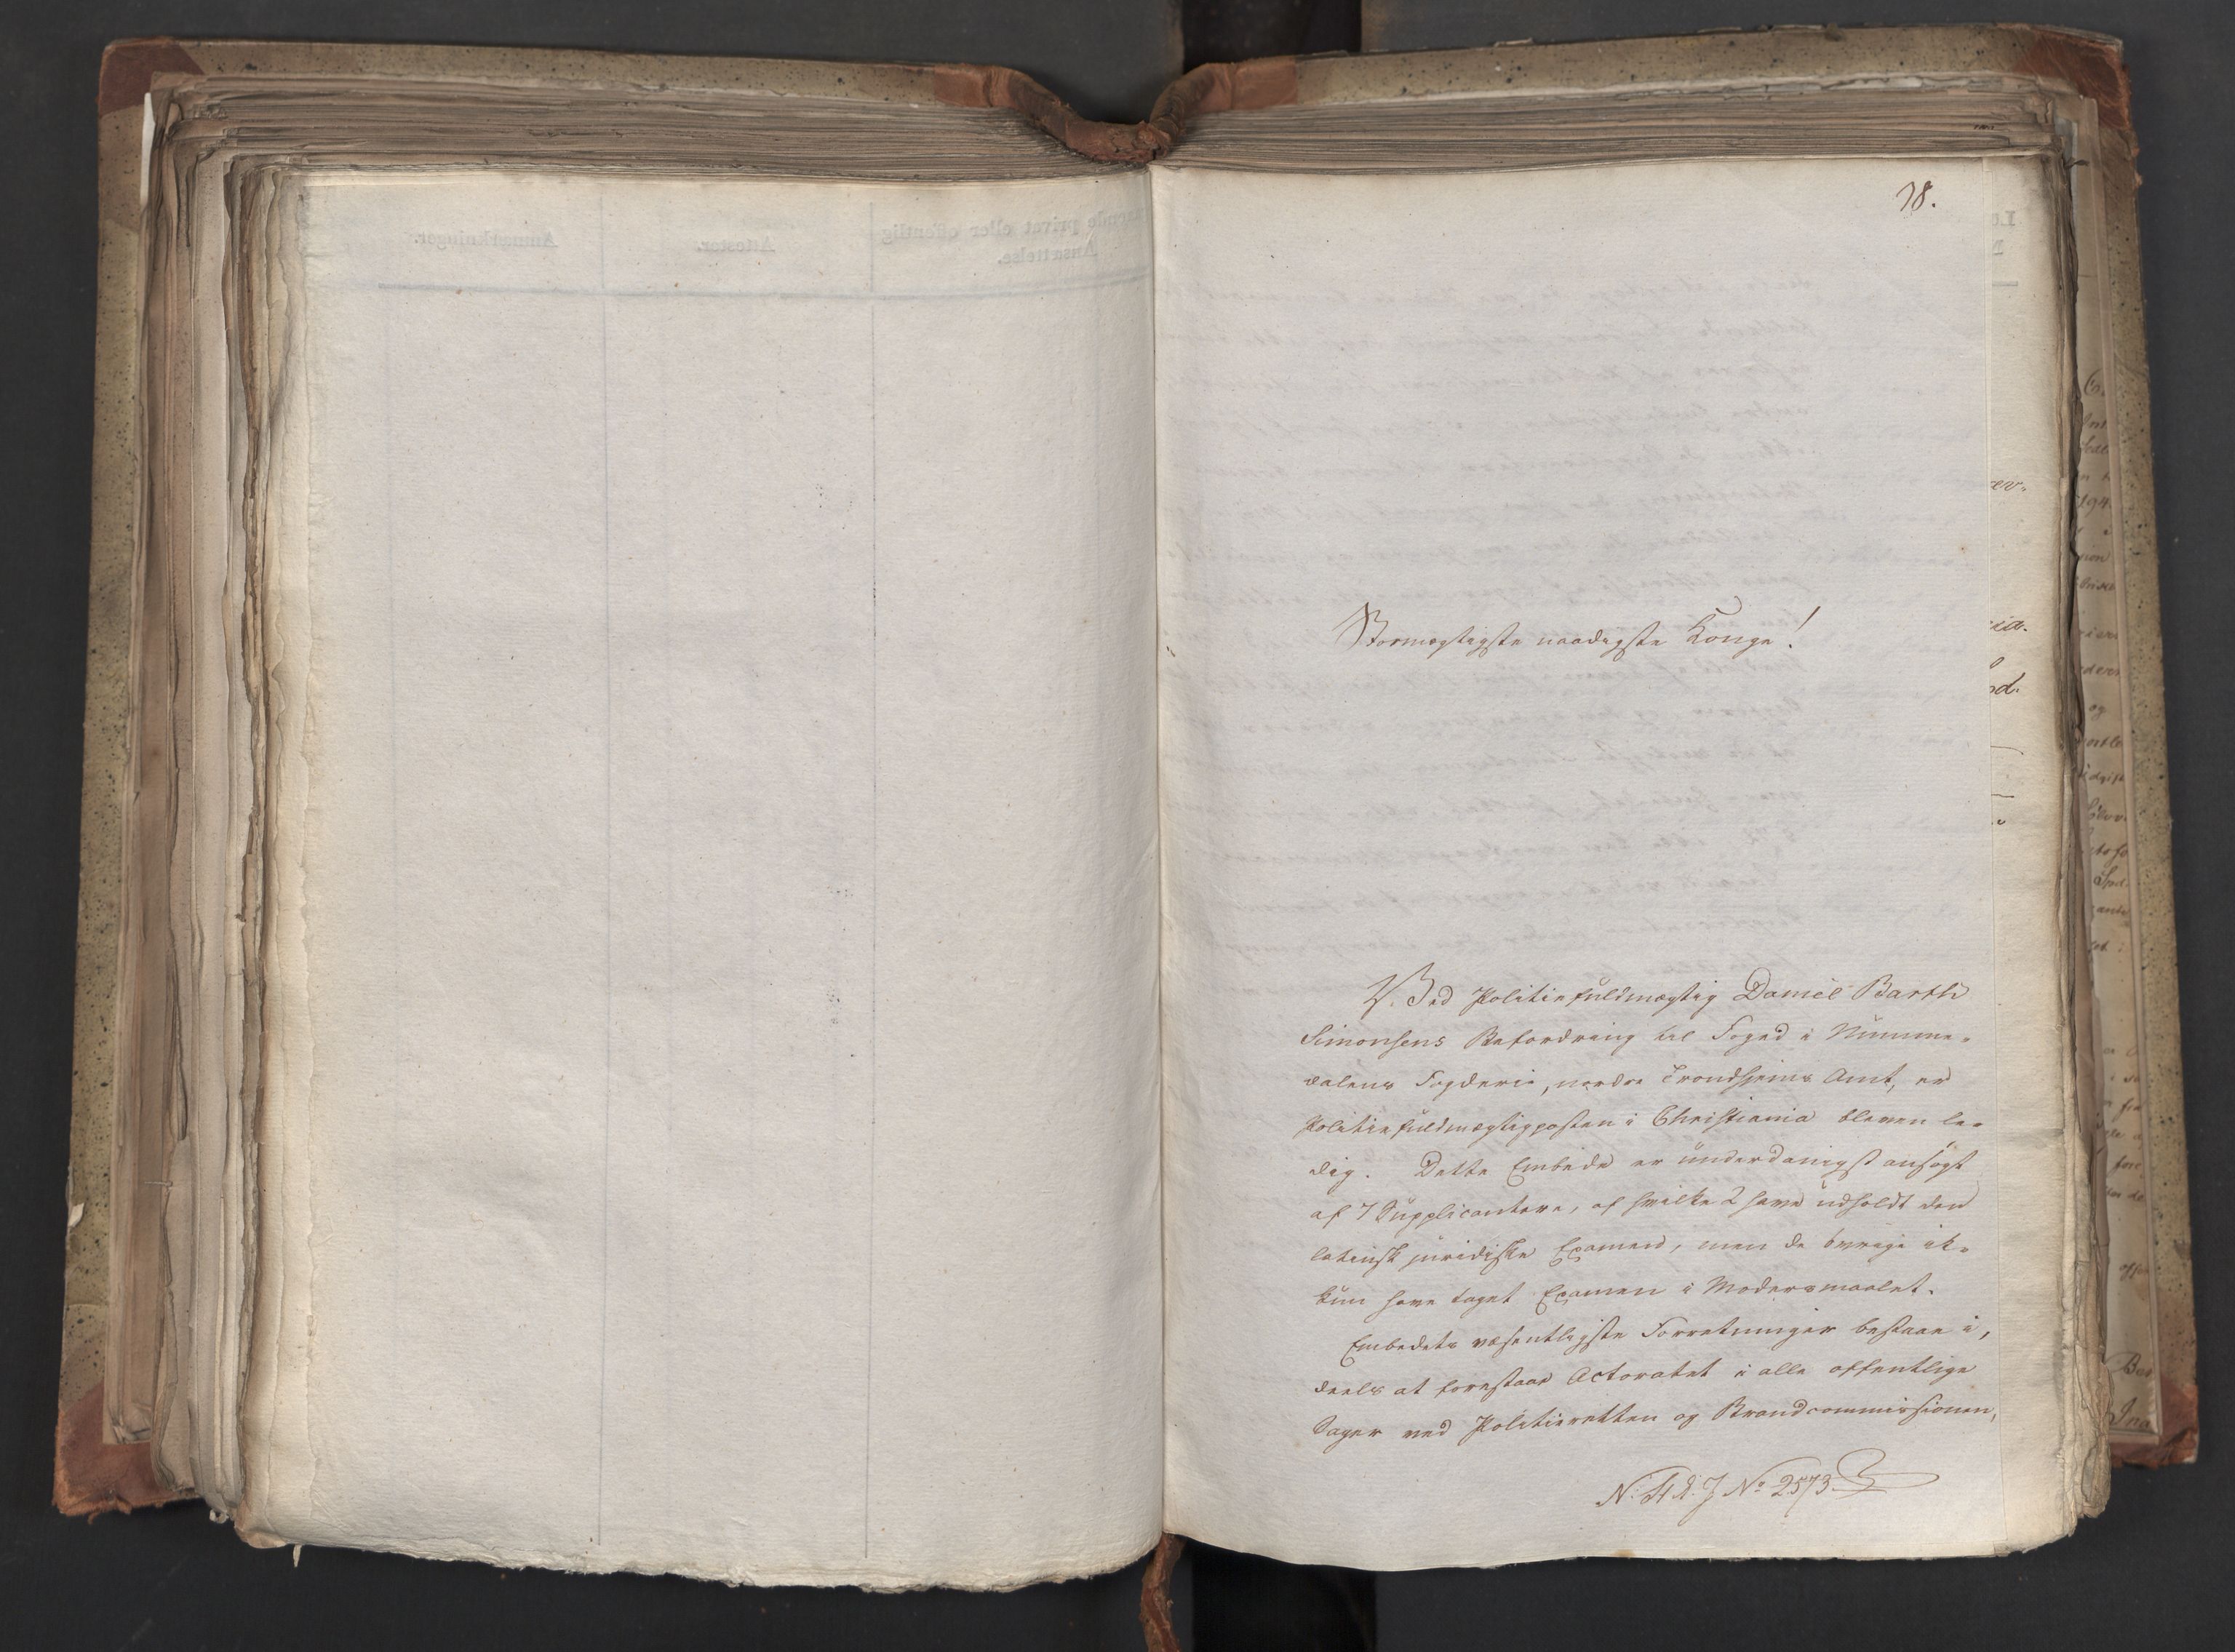 78.
Stormægtigste naadigste Konge!
Ved Politiefuldmægtig Daniel Barth
Simonsens Befordring til Foged i Numme-
dalens Fogderie, nordre Trondhjems Amt, er
Politiefuldmægtigposten i Christiania bleven le-
dig. Dette Embede er underdanigst ansøgt
af 7 Supplicantere, af hvilke 2 have udholdt den
latinsk juridiske Examen, men de øvrige
kun have taget Examen i Modersmaalet.
Embedets væsentligste Forretninger bestaae i,
deels at forestaae Actoratet i alle offentlige
Sager ved Politieretten og Brandcommissionen,
No 2573